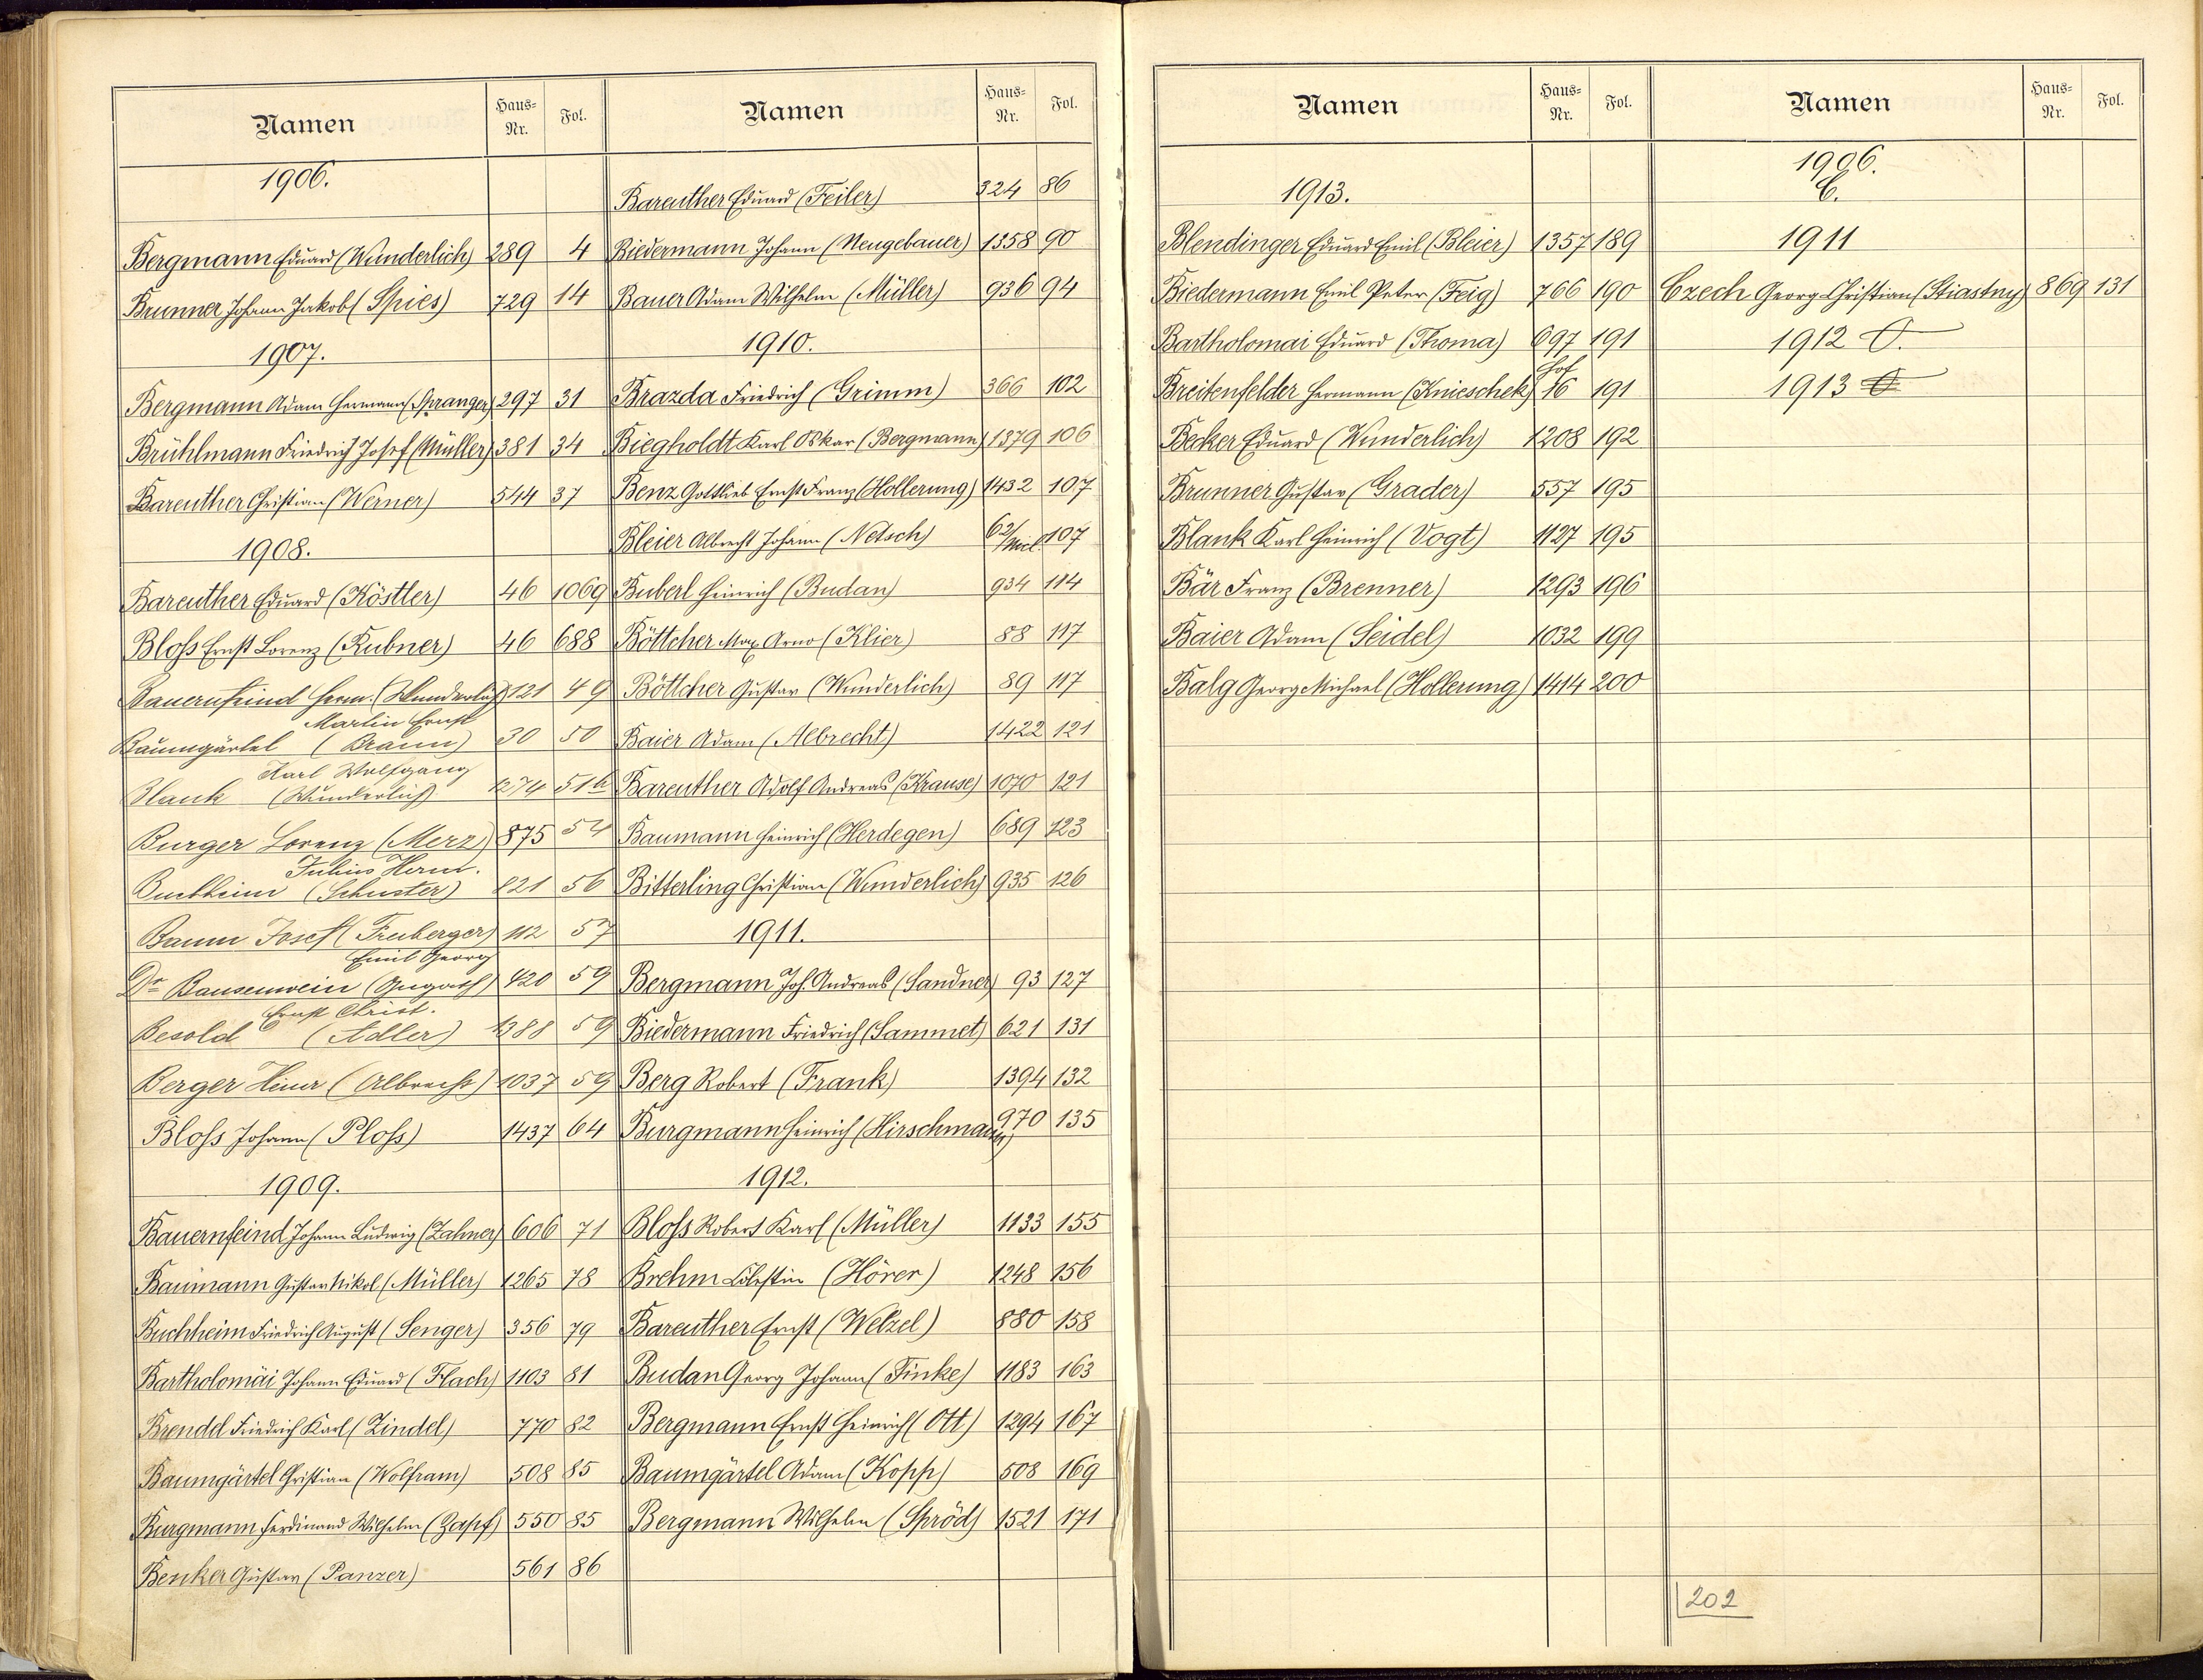 Namen Haus-Nr. Fol.
1906.
Bergmann Eduard (Wunderlich) 289 4
Brunner Johann Jakob (Spies) 729 14
1907.
Bergmann Adam Hermann (Spranger) 297 31
Brühlmann Friedrich Josef (Müller) 381 34
Bareuther Christian (Werner) 544 37
1908.
Bareuther Eduard (Köstler) 46 1069
Bloß Ernst Lorenz (Kubner) 46 688
Bauernfeind Herm. (Wunderlich) 121 49
Martin Ernst
Baumgärtel (Braun) 30 50
Karl Wolfgang
Blank (Wunderlich) 1274 51
Burger Lorenz (Merz) 875 54
Julius Herm.
Buchheim (Schuster) 821 56
Baum Josef (Freiberger) 112 57
Emil Georg
Dr Bausenwein 420 59
Ernst Christ.
Besold (Adler) 1388 59
Berger Heinr (Albrecht) 1037 59
Bloß Johann (Ploß) 1437 64
1909.
Bauernfeind Johann Ludwig (Zahner) 606 71
Baumann Gustav Nikol (Müller) 1265 78
Buchheim Friedrich August (Senger) 356 79
Bartholomäi Johann Eduard (Flach) 1103 81
Brendel Friedrich Karl (Zindel) 770 82
Baumgärtel Christian (Wolfram) 508 85
Burgmann Ferdinand Wilhelm (Zapf) 550 85
Benker Gustav (Panzer) 561 86
Namen Haus-Nr. Fol.
Bareuther Eduard (Feiler) 324 86
Biedermann Johann (Neugebauer) 1358 90
Bauer Adam Wilhelm (Müller) 936 94
1910.
Brazda Friedrich (Grimm) 366 102
Biegholdt Karl Oskar (Bergmann) 1379 106
Benz Gottlieb Ernst Franz (Hollerung) 1432 107
Bleier Albrecht Johann (Netsch) 62/Nied. 107
Buberl Heinrich (Budan) 934 114
Böttcher Max Arno (Klier) 88 117
Böttcher Gustav (Wunderlich) 89 117
Baier Adam (Albrecht) 1422 121
Bareuther Adolf Andreas (Krause) 1070 121
Baumann Heinrich (Herdegen) 689 123
Bitterling Christian (Wunderlich) 935 126
1911.
Bergmann Joh. Andreas (Sandner) 93 127
Biedermann Friedrich (Sammet) 621 131
Berg Robert (Frank) 1394 132
Burgmann Heinrich (Hirschmann) 970 135
1912.
Bloß Robert Karl (Müller) 1133 155
Brehm Cölestin (Hörer) 1248 156
Bareuther Ernst (Welzel) 880 158
Budan Georg Johann (Finke) 1183 163
Bergmann Ernst Heinrich (Ott) 1294 167
Baumgärtel Adam (Kopp) 508 169
Bergmann Wilhelm (Spröd) 1521 171
Namen Haus-Nr. Fol.
1913.
Blendinger Eduard Emil (Bleier) 1357 189
Biedermann Emil Peter (Feig) 766 190
Bartholomai Eduard (Thoma) 697 191
Breitenfelder Hermann (Knieschek) Hof 16 191
Becker Eduard (Wunderlich) 1208 192
Brunner Gustav (Grader) 557 195
Blank Karl Heinrich (Vogt) 1127 195
Bär Franz (Brenner) 1293 196
Baier Adam (Seidel) 1032 199
Balg Georg Michael (Hollerung) 1414 200
Namen Haus-Nr. Fol.
1906.
C.
1911
Czech Georg Christian (Stiastny) 869 131
1912
1913
202